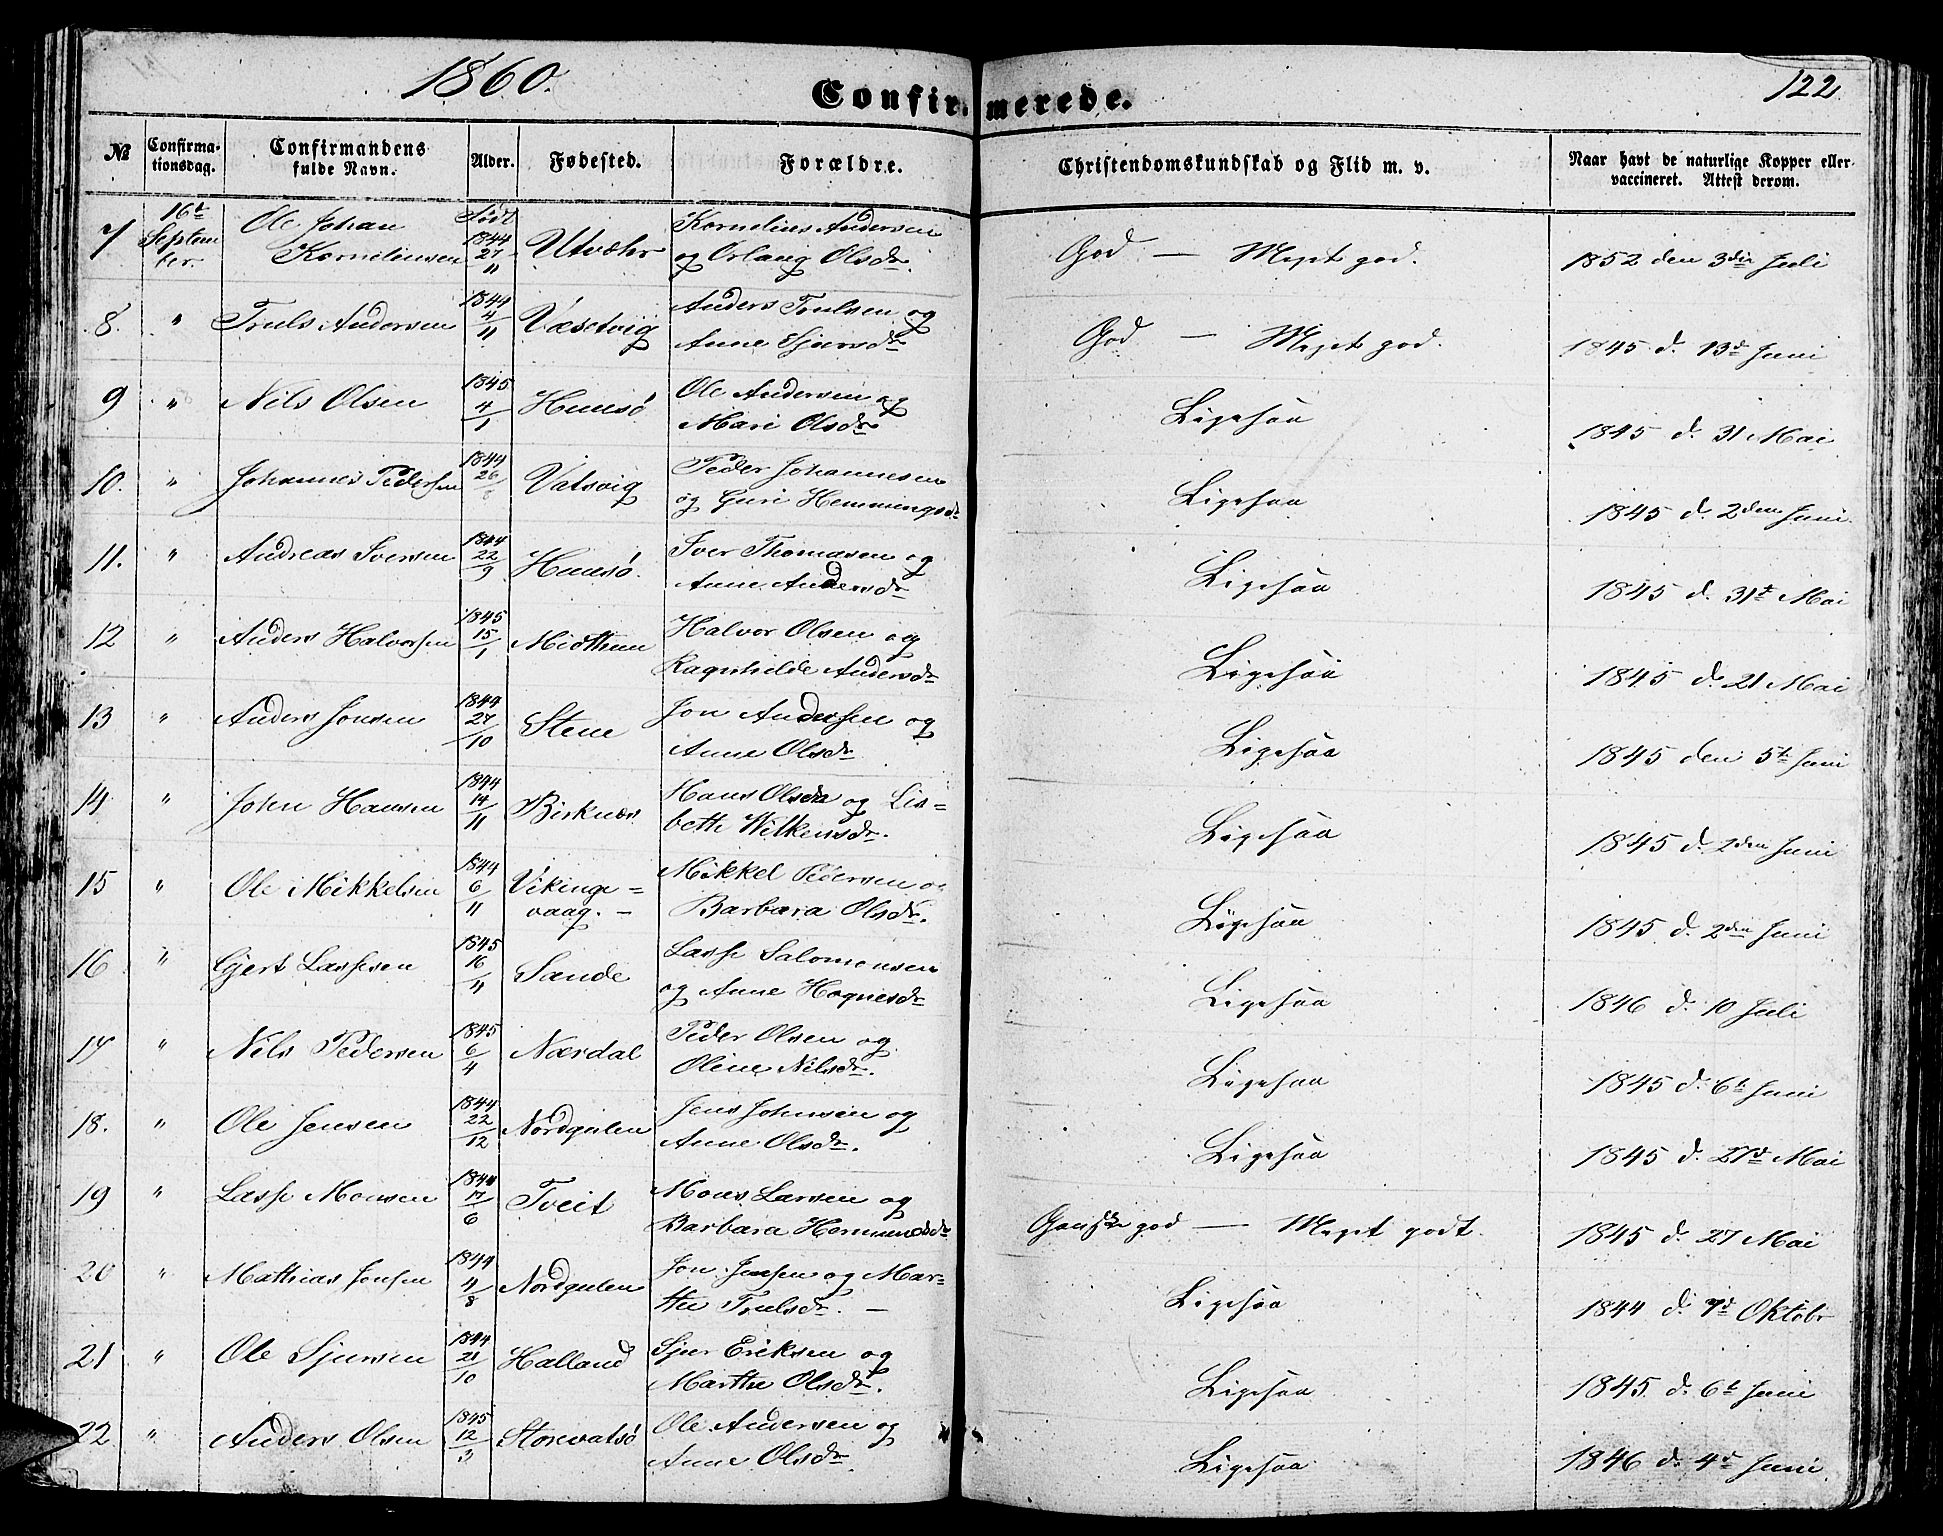 1860.
Confirmerede.
122
No
Confirmationsdag.
Confirmandens fulde Navn.
Alder.
Fødested.
Forældre.
Christendomskundskab og Flid m. v.
Naar havt de naturlige Kopper eller vaccineret. Attest derom.
7 16t September. Ole Johan Korneliussen Født 1844 27/11 Utvær Kornelius Andersen og Orlaug Olsdr. God — Meget god. 1852 den 3die Juli
8. " Truls Andersen 1844 4/11 Væsetvig Anders Trulsen og Anne Sjursdr God — Meget god. 1845 d. 13d Juni
9 " Nils Olsen 1845 4/1 Hunsø Ole Andersen og Mari Olsdr Ligesaa 1845 d. 31 Mai
10. " Johannes Pedersen 1844 26/8 Vatsvig Peder Johannesen og Guri Hemmingsdr Ligesaa 1845 d. 2den Juni
11. " Andreas Iversen 1844 22/9 Hunsø. Iver Thomasen og Anne Andersdr Ligesaa 1845 d. 31t Mai
12 " Anders Halvorsen 1845 15/1 Midthun Halvor Olsen og Ragnhilde Andersdr Ligesaa 1845 d. 21 Mai
13 " Anders Jonsen 1844 27/10 Stene Jon Andersen og Anne Olsdr Ligesaa 1845 den 5t Juni
14. " John Hansen 1844 14/11 Birknæs Hans Olsen og Lisbeth Wilkensdr. Ligesaa 1845 d. 2den Juni
15 " Ole Mikkelsen 1844 6/11 Vikingevaag. — Mikkel Pedersen og Barbara Olsdr. Ligesaa 1845 d. 2den Juni
16 " Gjert Lassesen 1845 16/11 Sande Lasse Salomonsen og Anne Hognesdr Ligesaa 1846 d. 10 Juli
17 " Nils Pedersen 1845 6/4 Nærdal Peder Olsen og Oline Nilsdr. Ligesaa 1845 d. 6t Juni
18. " Ole Jensen 1844 22/12 Nordgulen Jens Johnsen og Anne Olsdr. Ligesaa 1845 d. 27d Mai
19 " Lasse Monsen 1844 17/6 Tveit Mons Larsen og Barbara Hermundsdr Ganske god — Meget godt. 1845 d. 27 Mai
20 " Mathias Jonsen 1844 4/8 Nordgulen Jon Jensen og Marthe Trulsdr. — Ligesaa 1844 d. 7d Oktobr
21 " Ole Sjursen 1844 21/10 Halland Sjur Eriksen og Marthe Olsdr. Ligesaa 1845. d. 6t Juni
22. " Anders Olsen 1845 12/3 Storevatsø Ole Andersen og Anne Olsdr. Ligesaa 1846 d. 4d Juni